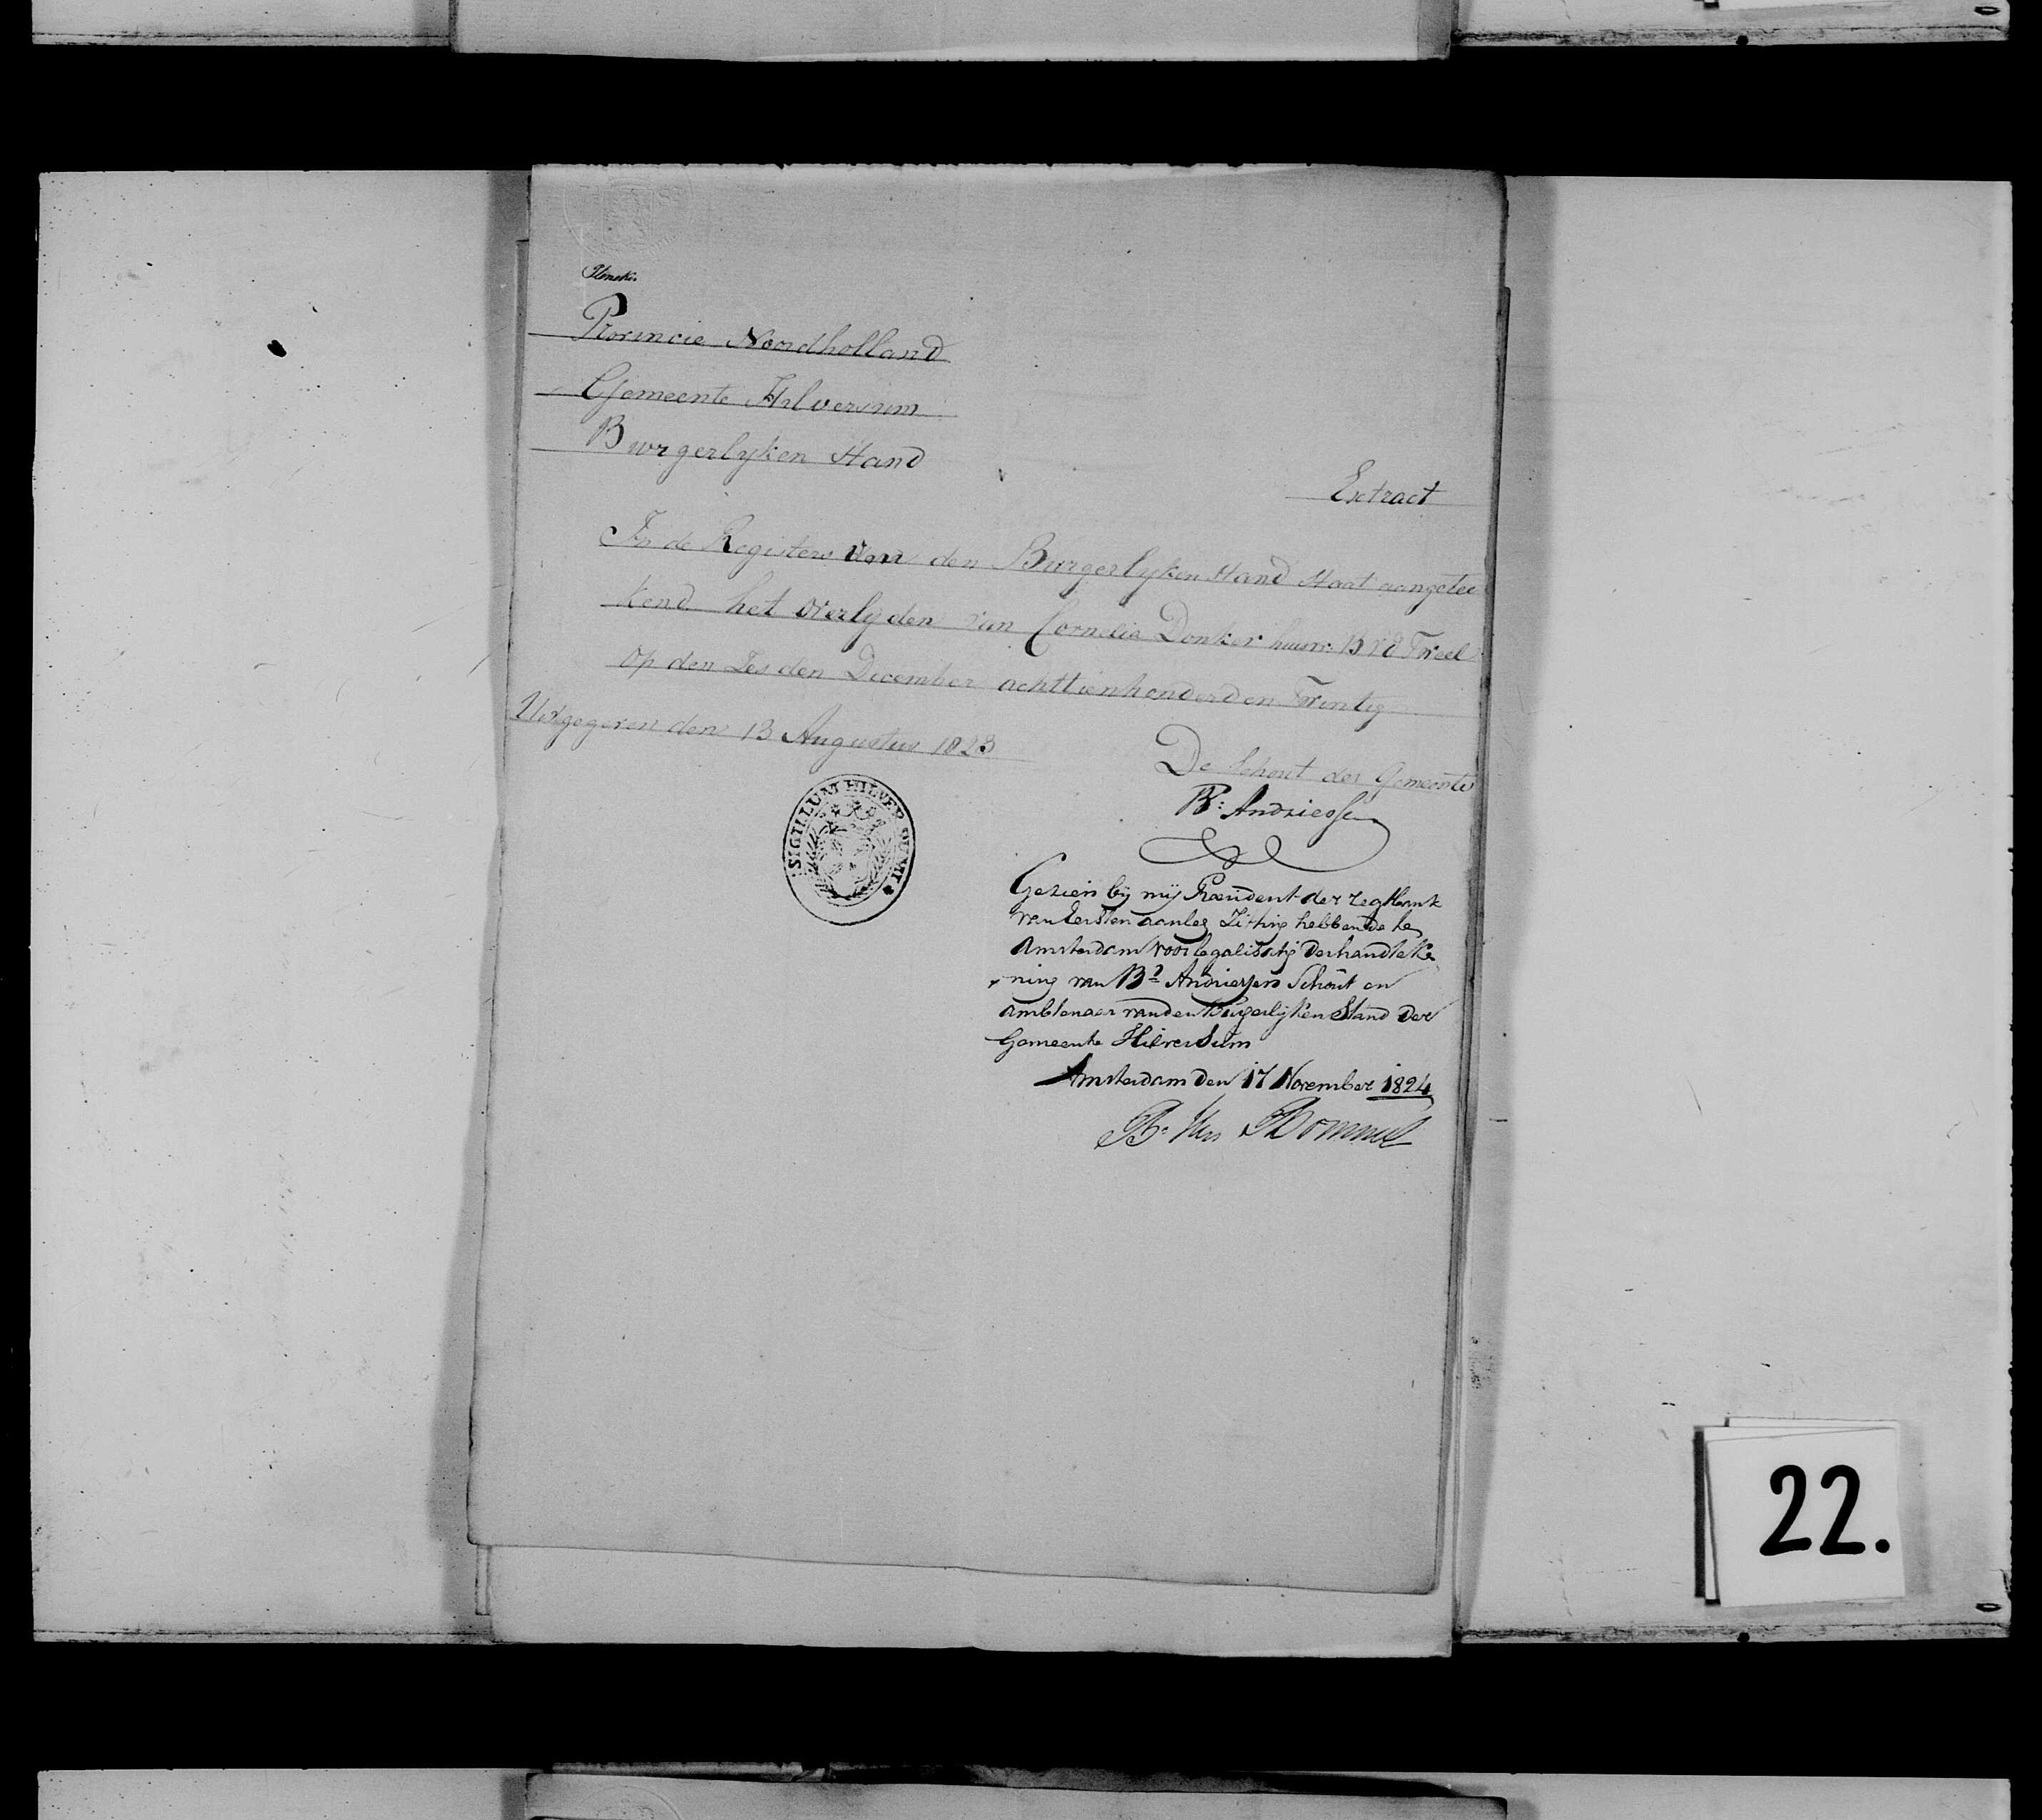 Provincie Noordholland
Gemeente Hilversum
Burgerlyken Stand
Extract
In de Registers van den Burgerlyken Stand Staat aangetee
kend het overlyden van Cornelia Donker huisvr:
op den Zesden December achttienhonderd en Twintig
Uitgegeven den 13 Augustus 1823
De Schout der Gemeente
B: Andriessen
SIGILLUM HILVERSUMI
Gezien bij mij President der regtbank
van Eersten aanleg Zitting hebbende te
Amsterdam voor legalisatij der handteke
ning van Bd Andriessen Schout en
Ambtenaar van den Burgerlijken Stand der
Gemeente Hilversum
Amsterdam den 17 November 1824
22.